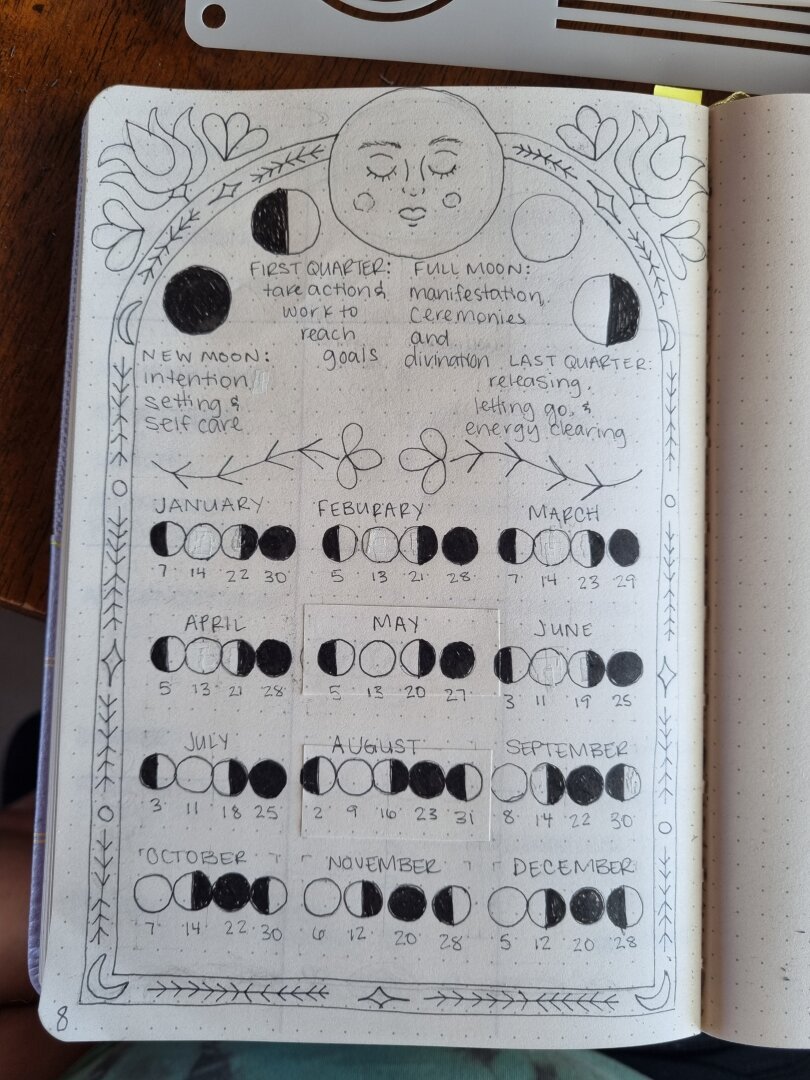 FIRST QUARTER:
take action &
work to
reach
goals
FULL MOON:
manifestation,
ceremonies
and
divination
NEW MOON:
intention
setting &
self care
LAST QUARTER:
releasing,
letting go, &
energy clearing
JANUARY
7 14 22 30
FEBURARY
5 13 21 28
MARCH
7 14 23 29
APRIL
5 13 21 28
MAY
5 13 20 27
JUNE
3 11 19 25
JULY
3 11 18 25
AUGUST
2 9 16 23 31
SEPTEMBER
8 14 22 30
OCTOBER
7 14 22 30
NOVEMBER
6 12 20 28
DECEMBER
5 12 20 28
8